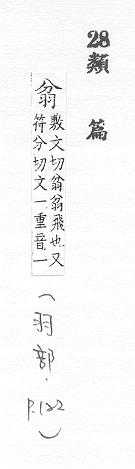 28類篇
翂
敷文切翂翂飛也又
符分切文一重音一
(羽部. P.122)